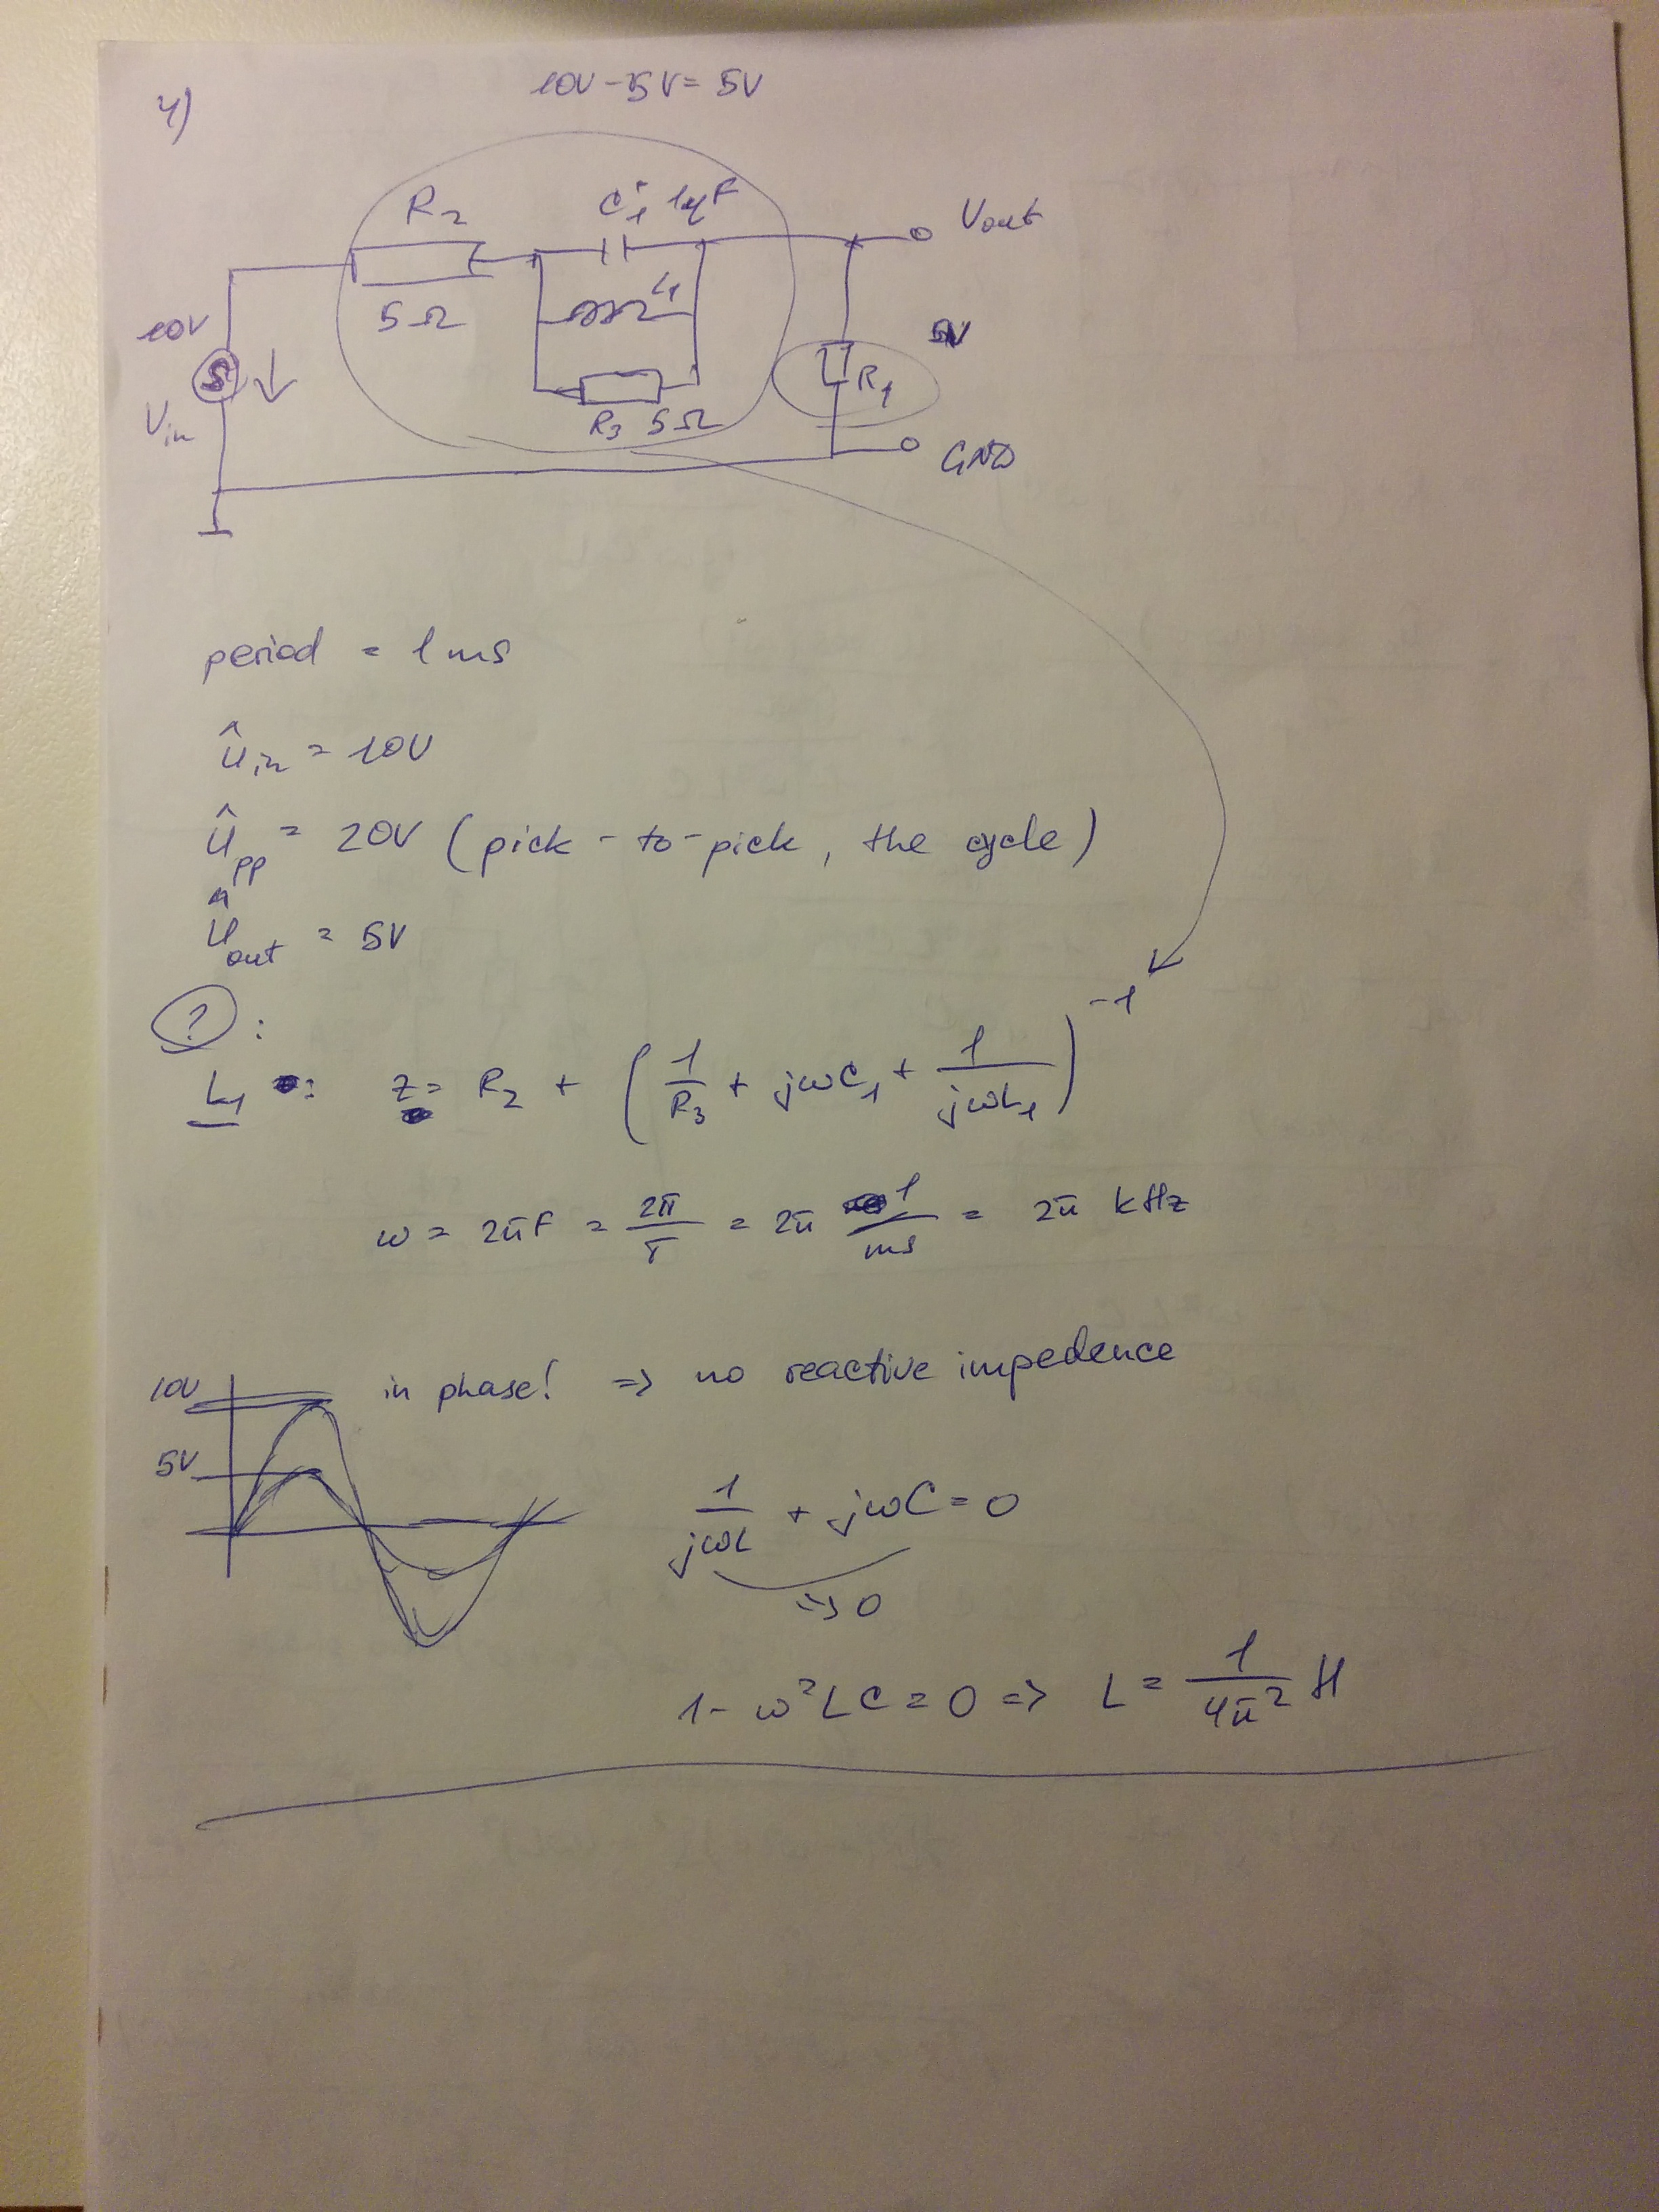 4)
10V - 5V = 5V
R₂
C₁ 1µF
Vout
5Ω
L₁
10V
5V
R₁
Vin
R₃ 5Ω
GND
period = 1 ms
û_in = 10V
û_pp = 20V (pick-to-pick, the cycle)
û_out = 5V
? :
L₁ : z = R₂ + (1/R₃ + jωC₁ + 1/jωL₁)⁻¹
ω = 2πf = 2π/T = 2π 1/ms = 2π kHz
10V
in phase! => no reactive impedence
5V
1/jωL + jωC = 0
=> 0
1 - ω²LC = 0 => L = 1/4π² H